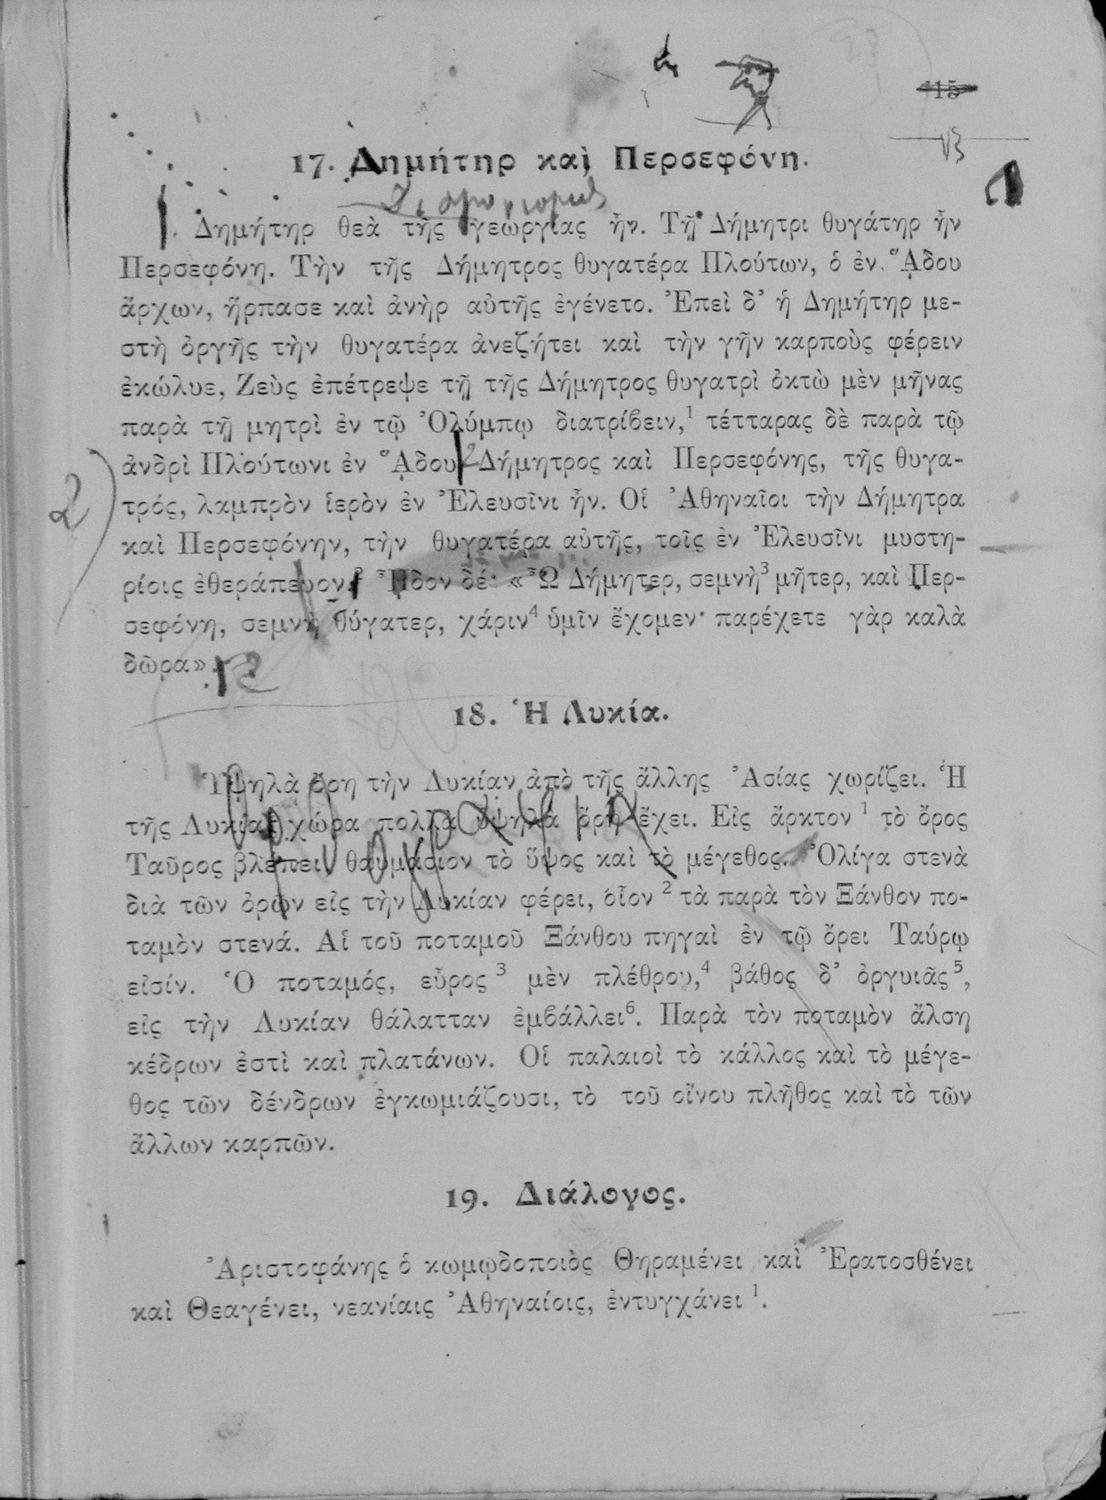 15
17. Δημήτηρ καὶ Περσεφόνη.
Δημήτηρ θεὰ τῆς γεωργίας ἦν. Τῇ Δήμητρι θυγάτηρ ἦν
Περσεφόνη. Τὴν τῆς Δήμητρος θυγατέρα Πλούτων, ὁ ἐν ᾍδου
ἄρχων, ἥρπασε καὶ ἀνὴρ αὐτῆς ἐγένετο. Ἐπεὶ δ' ἡ Δημήτηρ με-
στὴ ὀργῆς τὴν θυγατέρα ἀνεζήτει καὶ τὴν γῆν καρποὺς φέρειν
ἐκώλυε, Ζεὺς ἐπέτρεψε τῇ τῆς Δήμητρος θυγατρὶ ὀκτὼ μὲν μῆνας
παρὰ τῇ μητρὶ ἐν τῷ Ὀλύμπῳ διατρίβειν,¹ τέτταρας δὲ παρὰ τῷ
ἀνδρὶ Πλούτωνι ἐν ᾍδου Δήμητρος καὶ Περσεφόνης, τῆς θυγα-
2)
τρός, λαμπρὸν ἱερὸν ἐν Ἐλευσῖνι ἦν. Οἱ Ἀθηναῖοι τὴν Δήμητρα
καὶ Περσεφόνην, τὴν θυγατέρα αὐτῆς, τοῖς ἐν Ἐλευσῖνι μυστη-
ρίοις ἐθεράπευον.² ᾖδον δέ· «Ὦ Δήμητερ, σεμνὴ³ μῆτερ, καὶ Περ-
σεφόνη, σεμνὴ θύγατερ, χάριν⁴ ὑμῖν ἔχομεν· παρέχετε γὰρ καλὰ
δῶρα».
18. Ἡ Λυκία.
Ὑψηλὰ ὄρη τὴν Λυκίαν ἀπὸ τῆς ἄλλης Ἀσίας χωρίζει. Ἡ
τῆς Λυκίας χώρα πολλὰ ὑψηλὰ ὄρη ἔχει. Εἰς ἄρκτον ¹ τὸ ὄρος
Ταῦρος βλέπει, θαυμάσιον τὸ ὕψος καὶ τὸ μέγεθος. Ὀλίγα στενὰ
διὰ τῶν ὀρῶν εἰς τὴν Λυκίαν φέρει, οἷον ² τὰ παρὰ τὸν Ξάνθον πο-
ταμὸν στενά. Αἱ τοῦ ποταμοῦ Ξάνθου πηγαὶ ἐν τῷ ὄρει Ταύρῳ
εἰσίν. Ὁ ποταμός, εὖρος ³ μὲν πλέθρου,⁴ βάθος δ' ὀργυιᾶς⁵,
εἰς τὴν Λυκίαν θάλατταν ἐμβάλλει⁶. Παρὰ τὸν ποταμὸν ἄλση
κέδρων ἐστὶ καὶ πλατάνων. Οἱ παλαιοὶ τὸ κάλλος καὶ τὸ μέγε-
θος τῶν δένδρων ἐγκωμιάζουσι, τὸ τοῦ οἴνου πλῆθος καὶ τὸ τῶν
ἄλλων καρπῶν.
19. Διάλογος.
Ἀριστοφάνης ὁ κωμῳδοποιὸς Θηραμένει καὶ Ἐρατοσθένει
καὶ Θεαγένει, νεανίαις Ἀθηναίοις, ἐντυγχάνει ¹.